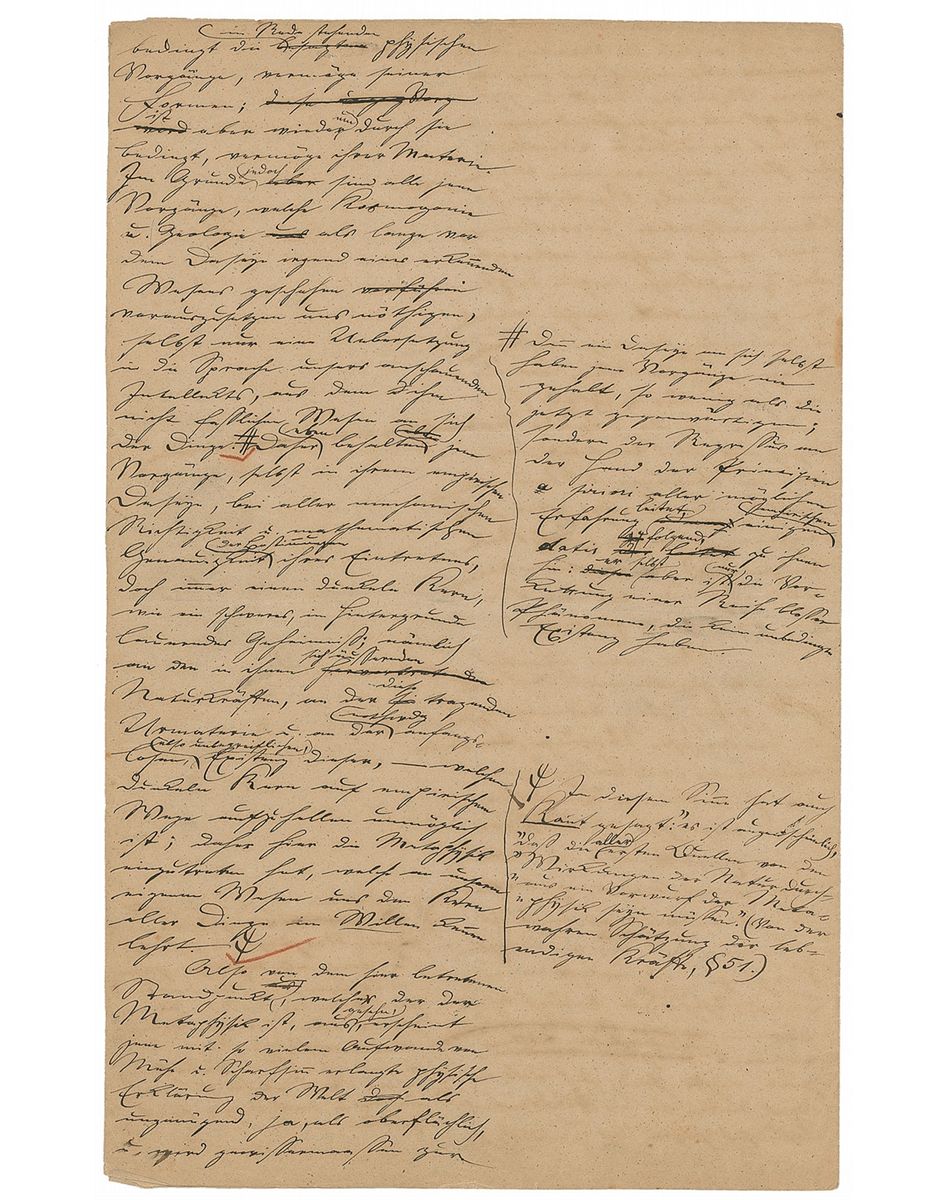 in Rede stehenden
bedingt die besagten physischen
Vorgänge, vermöge seiner
Formen;
ist
ward aber wieder und durch sie
bedingt, vermöge ihrer Materie.
Im Grunde jedoch aber sind alle jene
Vorgänge, welche Kosmogonie
u. Geologie uns als lange vor
dem Daseyn irgend eines erkennenden
Wesens geschehen
vorauszusetzen uns nöthigen,
selbst nur eine Uebersetzung
in die Sprache unsers anschauenden
Intellekts, aus dem ihm
nicht faßlichen Wesen an sich
der Dinge. # Daher behalten jene
Vorgänge, selbst in ihrem empirischen
Daseyn, bei aller mechanischen
Richtigkeit u. mathematischen
Genauigkeit der Bestimmungen ihres Eintretens,
doch immer einen dunkeln Kern,
wie ein schweres, im Hintergrunde
lauerndes Geheimniß; nämlich
an den in ihnen sich äussernden
Naturkräften, an der diese tragenden
Urmaterie u. an der anfangs-
losen, also unbegreiflichen, Existenz dieser, — welchen
dunkeln Kern auf empirischem
Wege aufzuhellen unmöglich
ist; daher hier die Metaphysik
einzutreten hat, welche an unserm
eigenen Wesen uns den Kern
aller Dinge im Willen kennen
lehrt. ψ
Also von dem hier betretenen
Standpunkt, welcher der der
Metaphysik ist, aus gesehn, erscheint
jene mit so vielem Aufwande von
Mühe u. Scharfsinn erlangte physische
Erklärung der Welt als
ungenügend, ja, als oberflächlich,
u. wird gewissermaassen zur
# Denn ein Daseyn an sich selbst
haben jene Vorgänge nie
gehabt, so wenig als die
jetzt gegenwärtigen;
sondern der Regressus an
der Hand der Principien
a priori aller möglichen
Erfahrung leitet, einigen empirischen
datis folgend, zu ihnen
hin: er selbst aber ist nur die Ver-
kettung einer Reihe bloßer
Phänomene, die keine unbedingte
Existenz haben.
ψ In diesem Sinne hat auch
Kant gesagt: „es ist augenscheinlich,
„daß die allerersten Quellen von den
„Wirkungen der Natur durch-
„aus ein Vorwurf der Meta-
„physik seyn müssen.“ (Von der
wahren Schätzung der leb-
endigen Kräfte, § 51.)